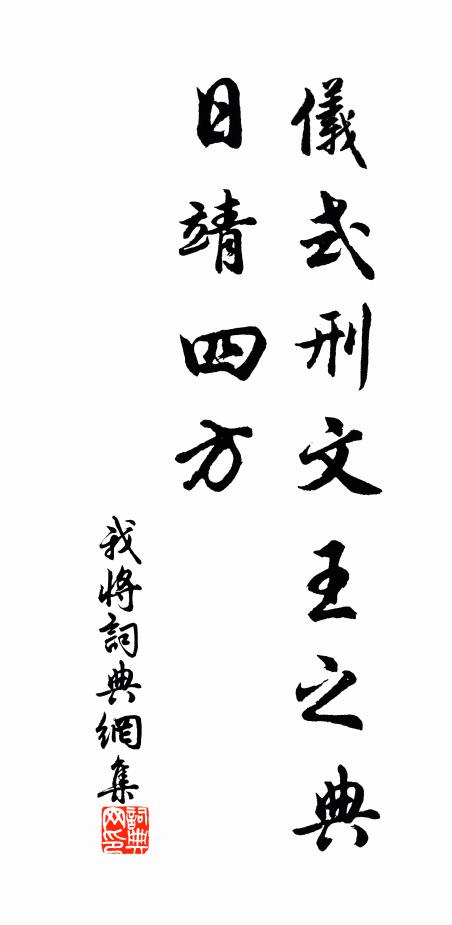 儀式刑文王之典
日靖四方
我將詞典網集
詞典
网印